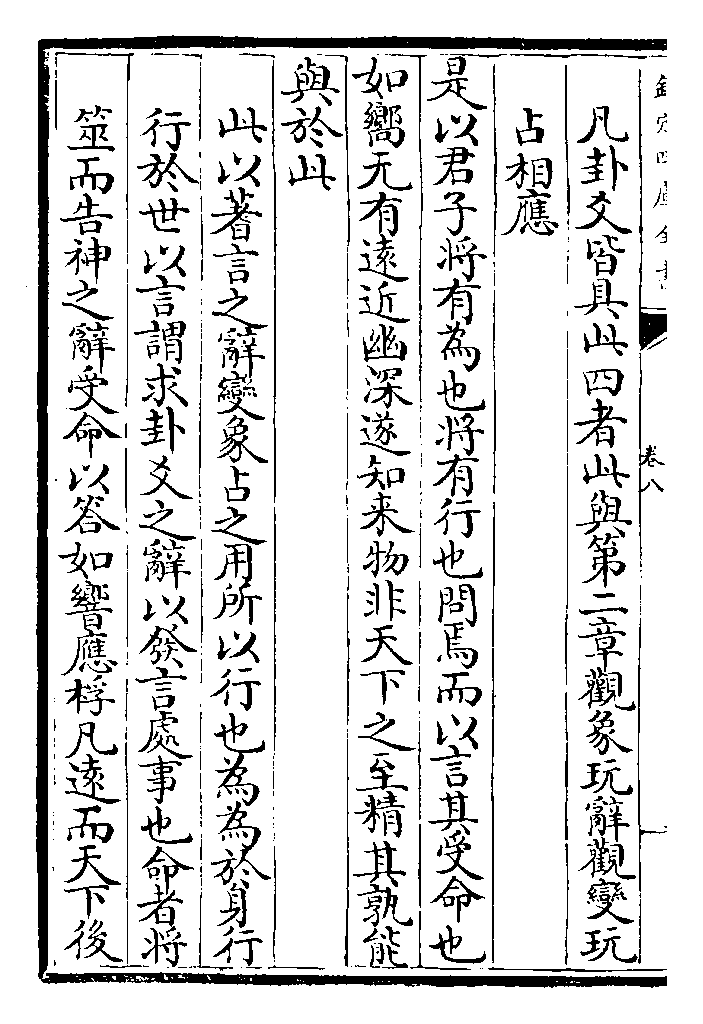 欽定四庫全書
卷八
凡卦爻皆具此四者此與第二章觀象玩辭觀變玩
占相應
是以君子將有為也將有行也問焉而以言其受命也
如嚮无有遠近幽深遂知来物非天下之至精其孰能
與於此
此以著言之辭變象占之用所以行也為為於身行
行於世以言謂求卦爻之辭以發言處事也命者將
筮而告神之辭受命以答如響應桴凡遠而天下後